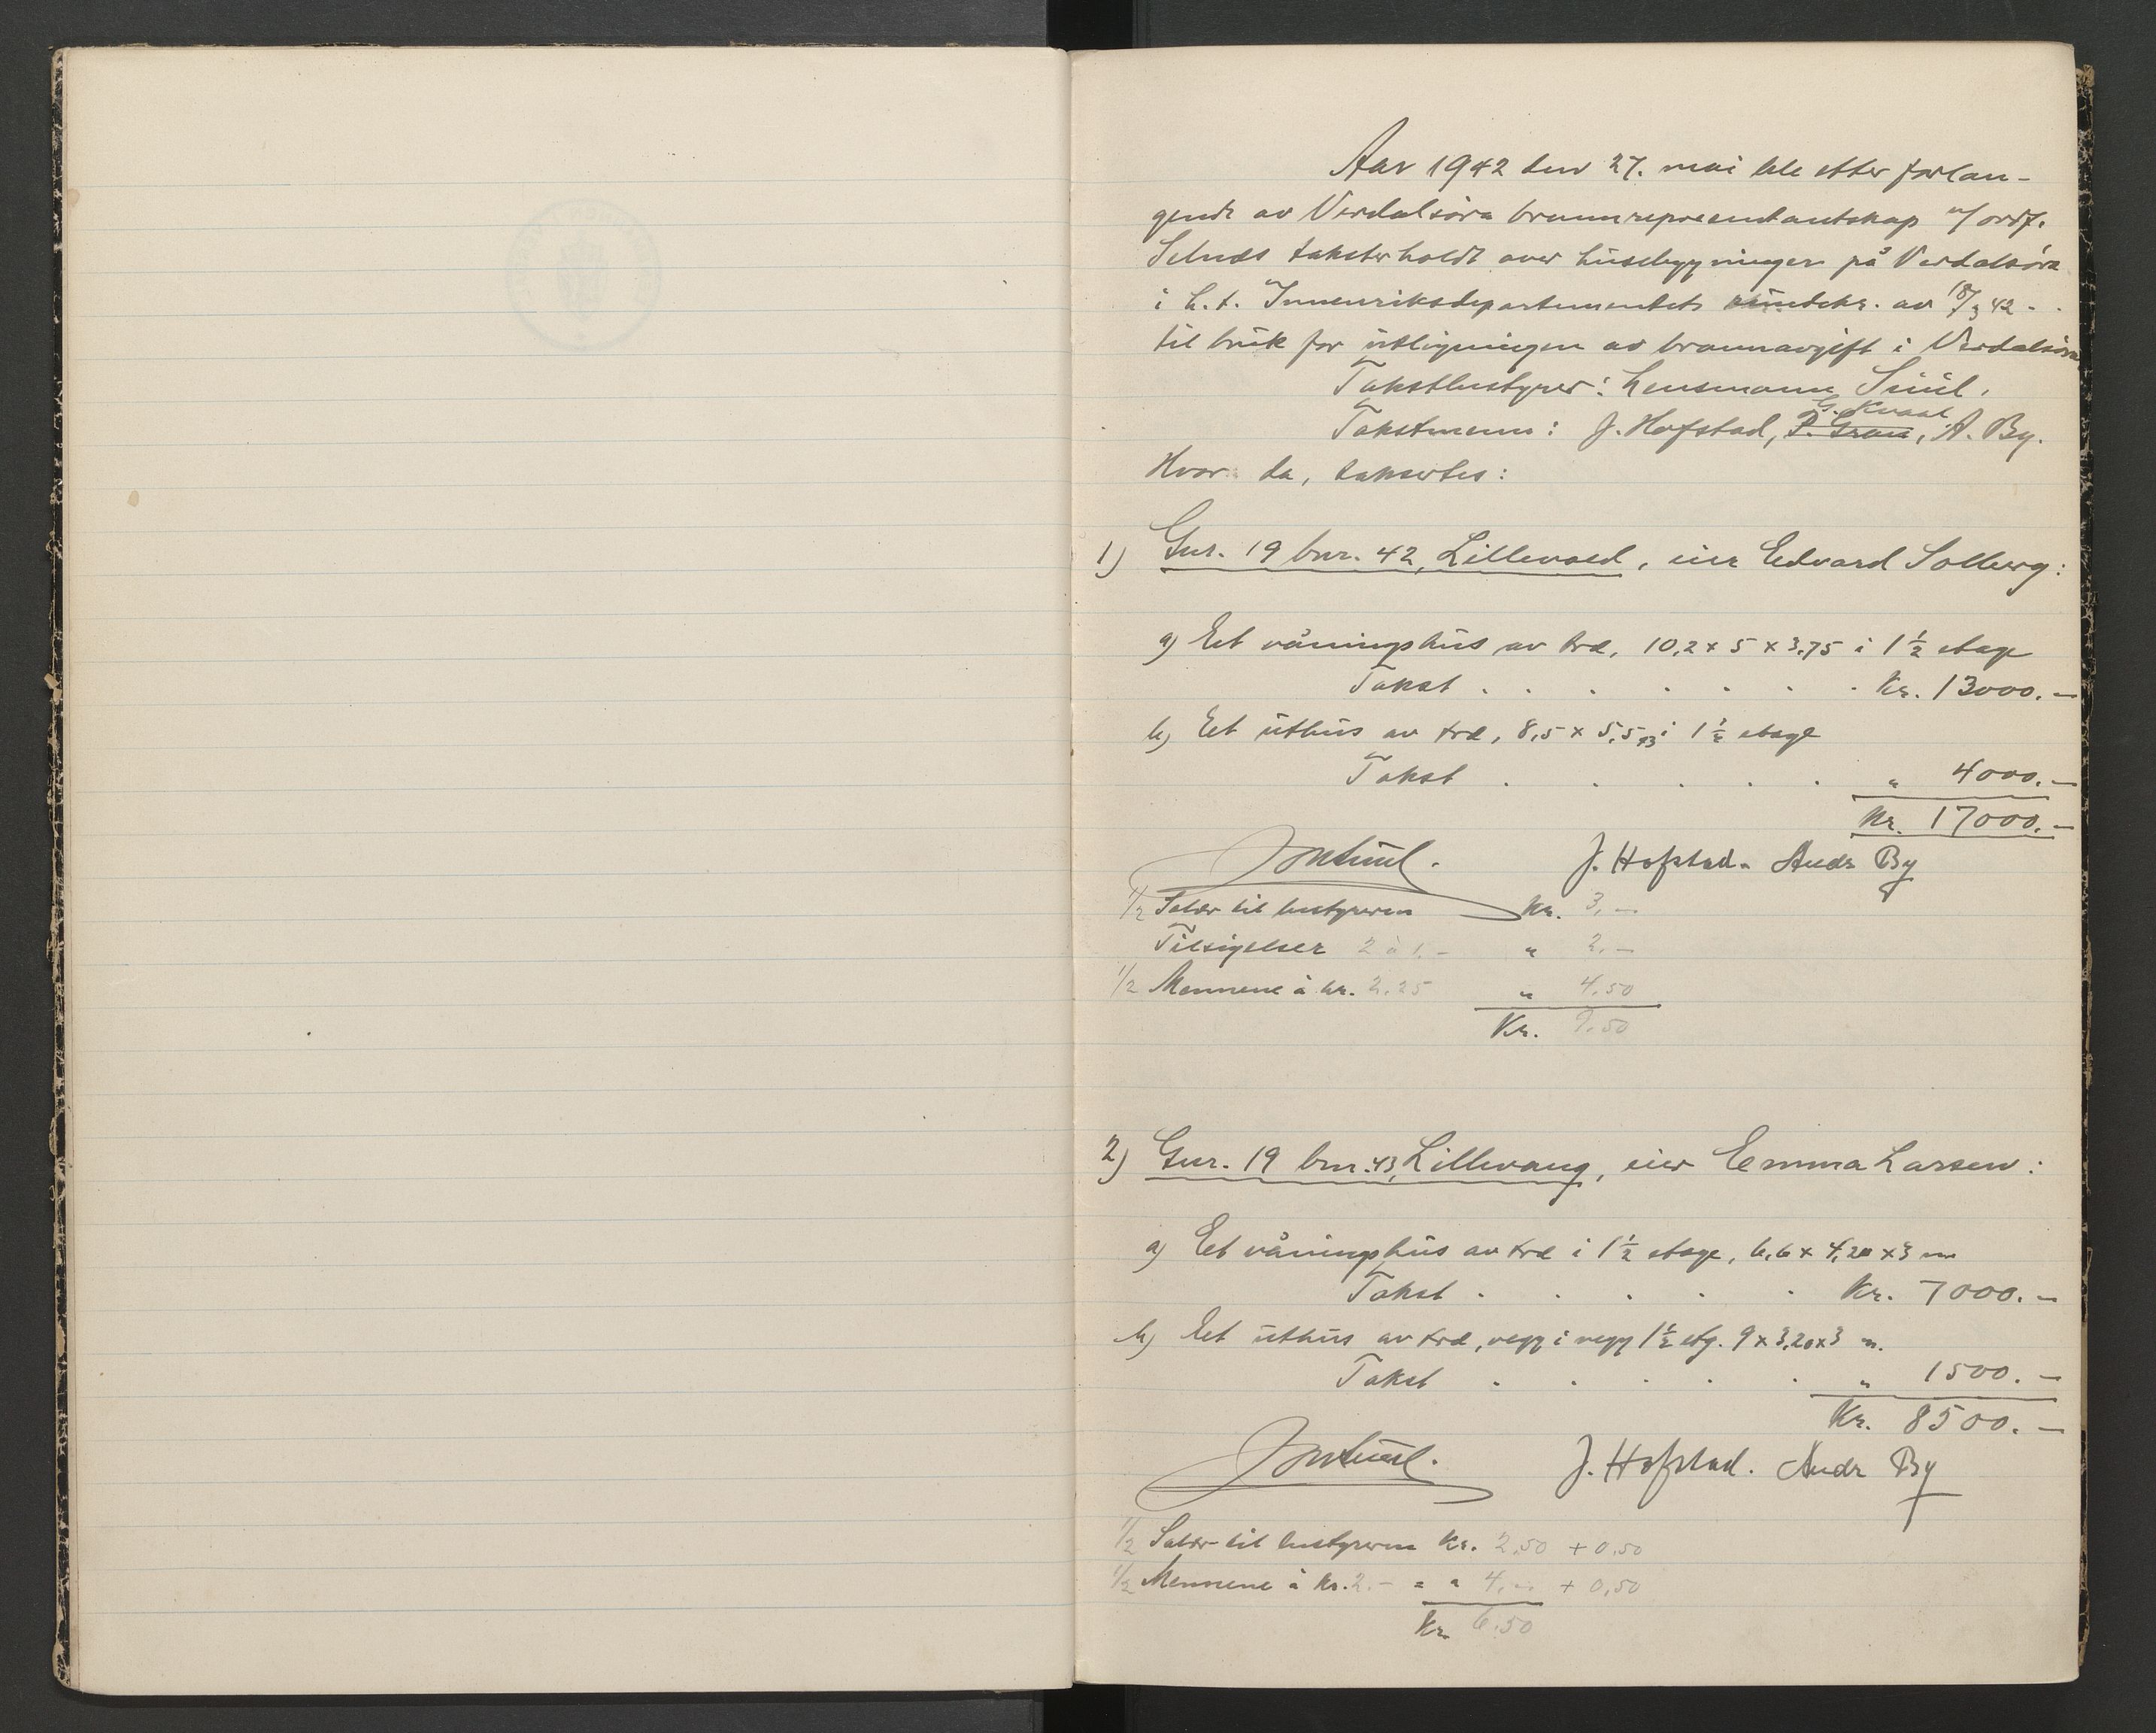 Aar 1942 den 27. mai ble etter forlan-
gende av Verdalsöra brannrepresentantskap v/ ordf.
Selnæs takster holdt over husebygninger på Verdalsöra
i h.t. Innenriksdepartementets rundskr. av 18/3 42 -
til bruk for utligningen av brannavgift i Verdalsöra
Takstbestyrer: Lensmann Suul.
G. Kvaal
Takstmenn: J. Hofstad, P. Gran, A. By.
Hvor da, taksertes:
1) Gnr. 19 bnr. 42, Lillevold, eier Edvard Solberg:
a) Et våningshus av træ, 10,2 x 5 x 3,75 i 1 1/2 etage
Takst . . . . . . . Kr. 13000.-
b) Et uthus av træ, 8,5 x 5,5 x 3 i 1 1/2 etage
Takst . . . . . " 4000.-
Kr. 17000.-
J. Hofstad. Andr By
1/2 Salær til bestyreren Kr. 3,-
Tilsigelser 2 à 1.- " 2.-
1/2 Mennene à kr. 2.25 " 4.50
Kr. 9.50
2) Gnr. 19 bnr. 43, Lillevang, eier Emma Larsen:
a) Et våningshus av træ i 1 1/2 etage, 6,6 x 4,20 x 3 m
Takst . . . . . Kr. 7000.-
b) Et uthus av træ, vegg i vegg 1 1/2 etg. 9 x 3,20 x 3 m.
Takst . . . . . " 1500.-
Kr. 8500.-
J. Hofstad. Andr By
1/2 Salær til bestyreren Kr. 2.50 + 0.50
1/2 Mennene à Kr. 2.- = " 4.- + 0,50
Kr. 6.50